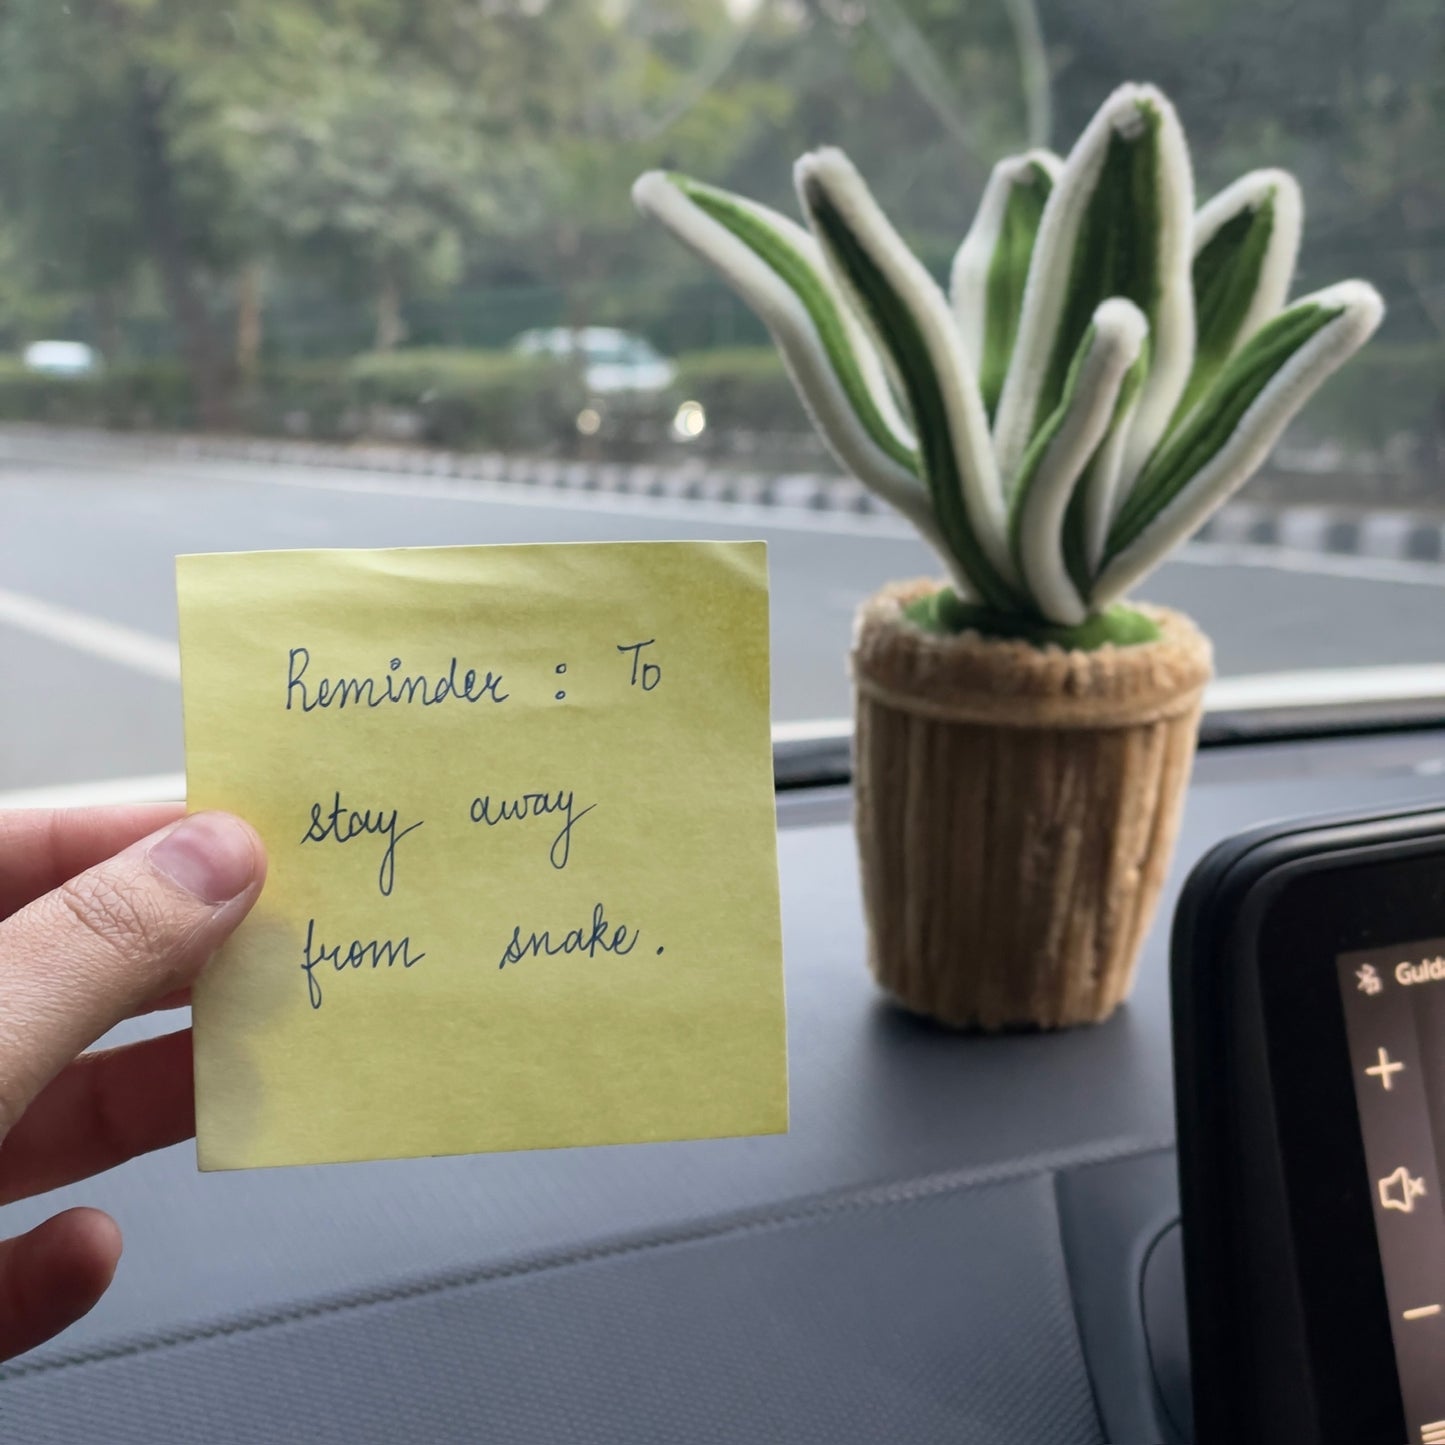 Reminder : To
stay away
from snake.